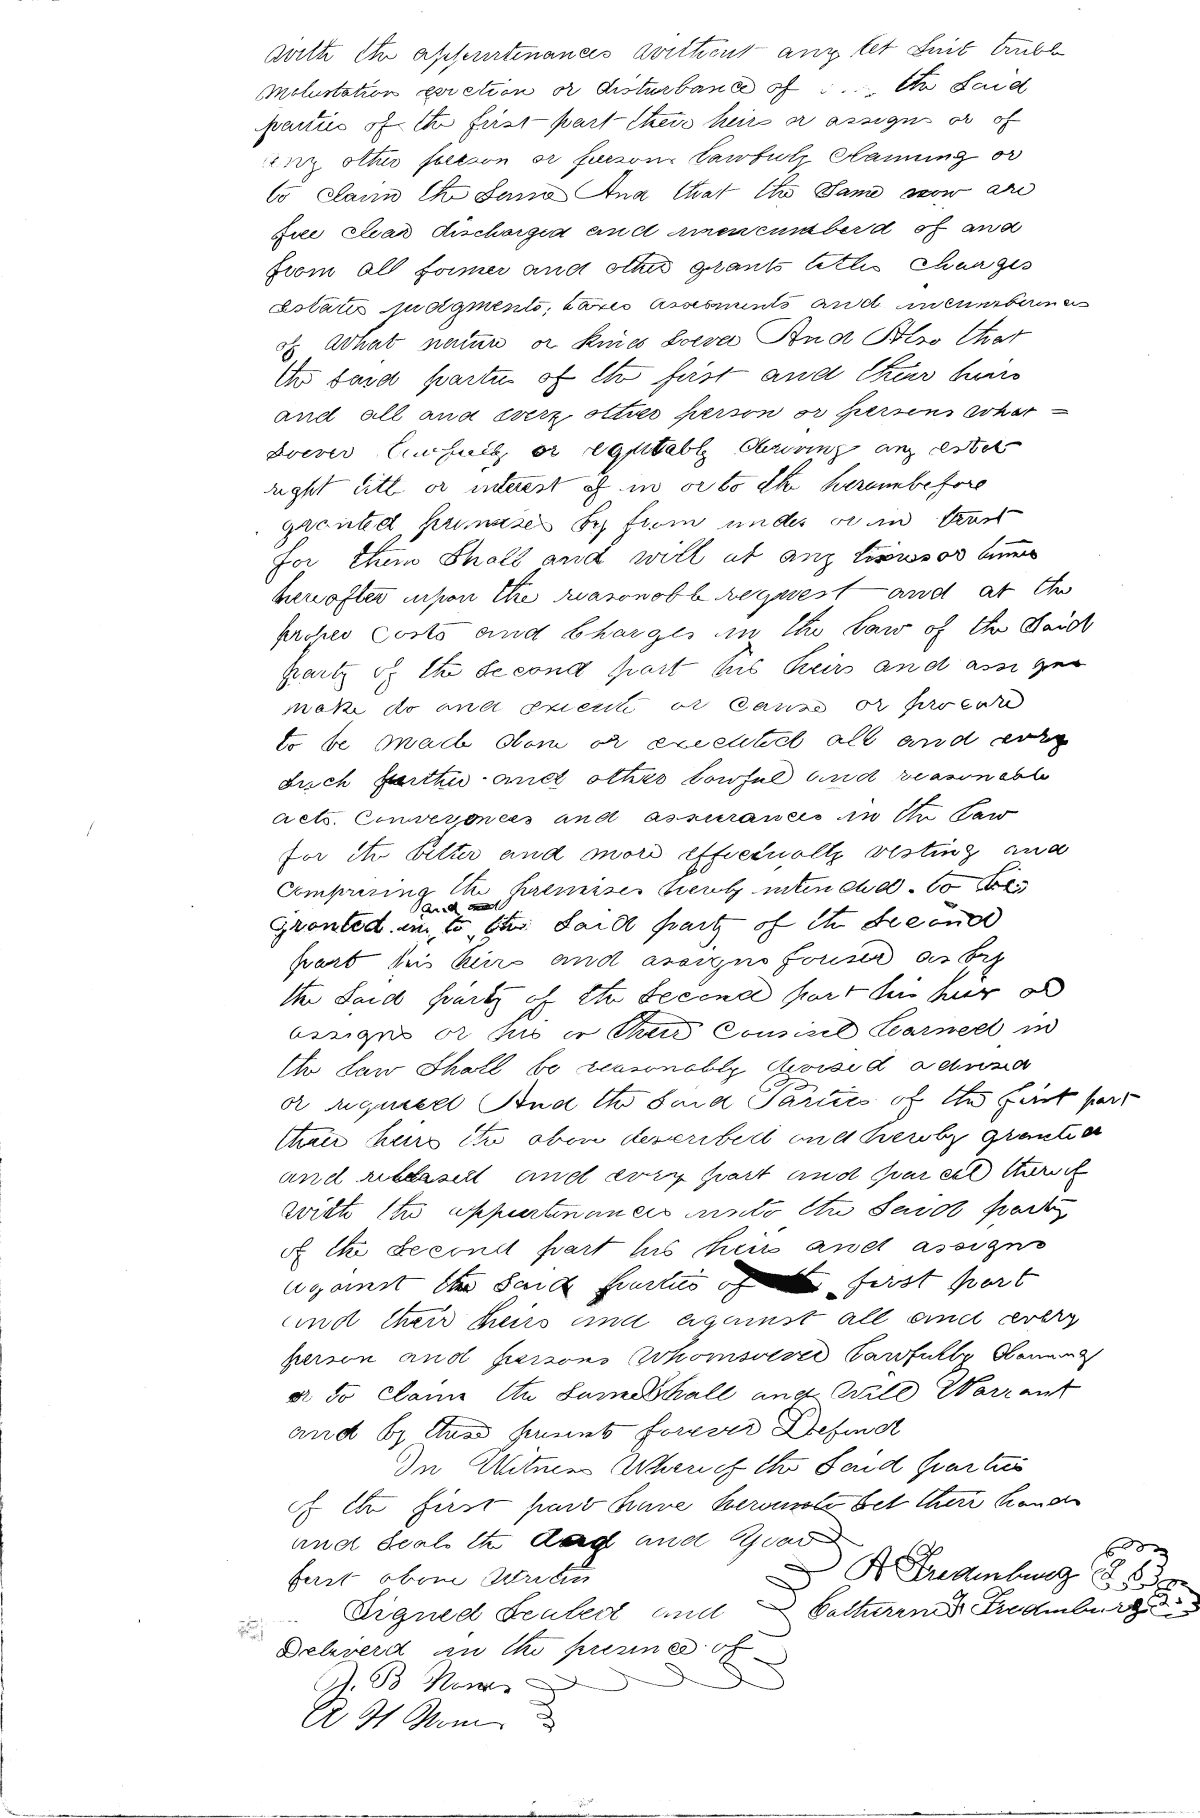 with the appurtenances without any let Suit trubl
molustation eviction or disturbance of the Said
parties of the first part their heirs or assigns or of
any other person or persons lawfuly Claiming or
to claim the Same And that the Same now are
free clear discharged and unencumberd of and
from all former and other grants titles charges
estates judgments, taxes assesments and incumberences
of what nature or kind soever And Also that
the said parties of the first and their heirs
and all and every other person or persons what =
soever lawfully or equitably deriving any estate
right title or interest of in or to the hereinbefore
granted premises by from under or in trust
for them Shall and will at any time or times
hereafter upon the reasonable request and at the
proper costs and Charges in the law of the Said
party of the second part his heirs and assigns
make do and execute or cause or procure
to be made done or executed all and every
such further and other lawful and reasonable
acts. Conveyances and assurances in the law
for the better and more effectually vesting and
Comprising the premises hereby intended. to be
and
Granted in to the Said party of the Second
part his heirs and assigns forever as by
the Said party of the Second part his heir or
assigns or his or their Counsel learned in
the law Shall be reasonably devised advised
or required And the Said Parties of the first part
their heirs the above described and hereby granted
and released and every part and parcel thereof
with the appurtenances unto the Said party
of the Second part his heirs and assigns
against the Said parties of the first part
and their heirs and against all and every
person and persons whomsoever lawfully Claiming
or to claim the Same Shall and Will Warrant
and by these presents forever Defend
In Witness Whereof the Said parties
of the first part have hereunto Set their hands
and Seals the day and Year
first above written
A Fredenburg
Signed Sealed and Catherine Fredenburg
Deliverd in the presence of
B
H